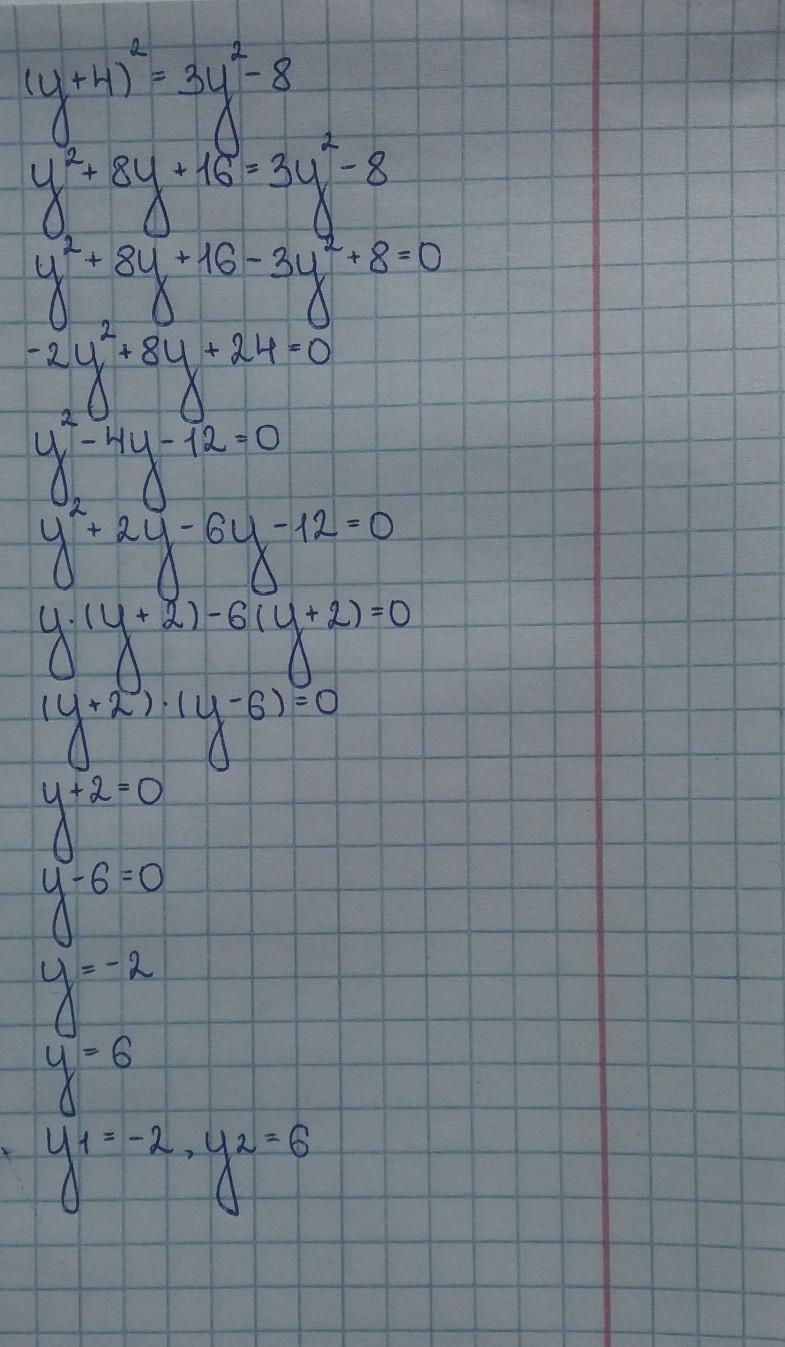 (y+4)² = 3y² - 8
y² + 8y + 16 = 3y² - 8
y² + 8y + 16 - 3y² + 8 = 0
-2y² + 8y + 24 = 0
y² - 4y - 12 = 0
y² + 2y - 6y - 12 = 0
y·(y+2) - 6(y+2) = 0
(y+2)·(y-6) = 0
y+2=0
y-6=0
y=-2
y=6
y1 = -2, y2 = 6